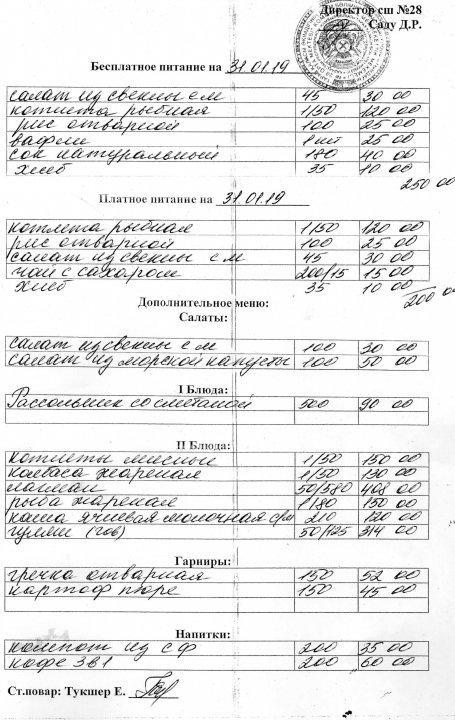 Директор сш №28
Саду Д.Р.
Бесплатное питание на 31.01.19
салат из свеклы с м 45 30 00
котлета рыбная 1/50 120 00
рис отварной 100 25 00
вафли 1 шт 25 00
сок натуральный 180 40 00
хлеб 35 10 00
250 00
Платное питание на 31.01.19
котлета рыбная 1/50 120 00
рис отварной 100 25 00
салат из свеклы с м 45 30 00
чай с сахаром 200/15 15 00
хлеб 35 10 00
200 00
Дополнительное меню:
Салаты:
салат из свеклы с м 100 30 00
салат из морской капусты 100 50 00
I Блюда:
Рассольник со сметаной 500 90 00
II Блюда:
котлеты мясные 1/50 150 00
колбаса жареная 1/50 130 00
лагман 50/580 408 00
рыба жареная 1/80 150 00
каша ячневая молочная с/м 210 120 00
гуляш (гов) 50/125 314 00
Гарниры:
гречка отварная 150 52 00
картоф пюре 150 45 00
Напитки:
компот из с ф 200 35 00
кофе 3в1 200 60 00
Ст.повар: Тукшер Е.